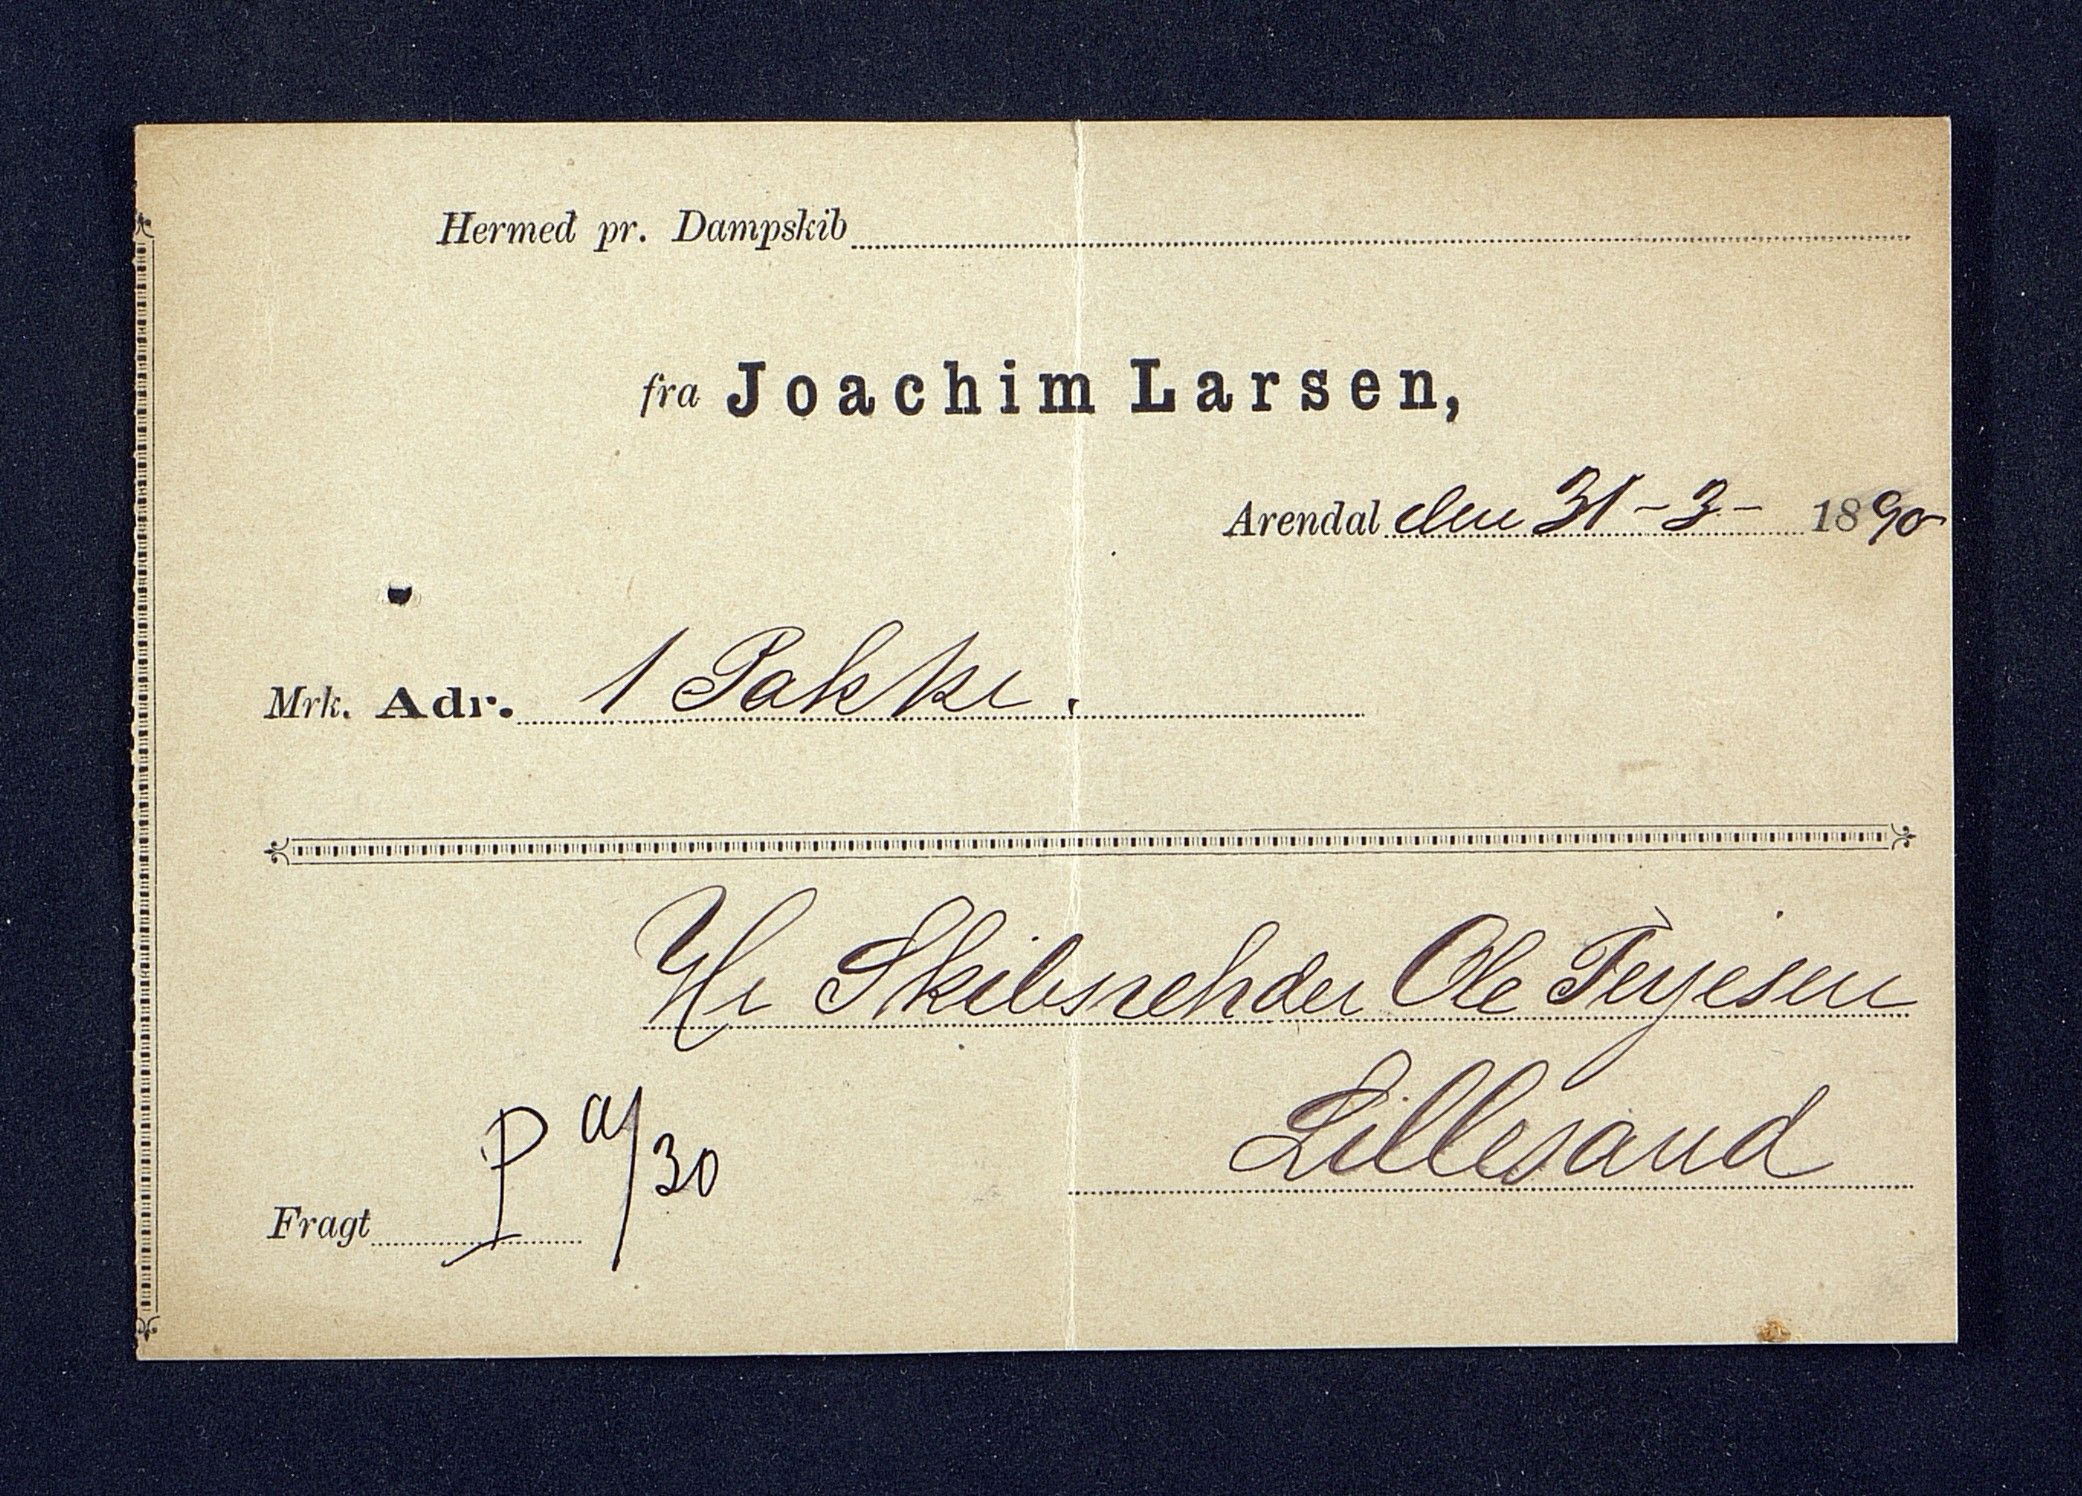 Hermed pr. Dampskib
fra Joachim Larsen,
Arendal den 31-3- 1890
Mrk. Adr. 1 Pakke.
Hr Skibsrehder Ole Terjesen
Lillesand
Fragt 30